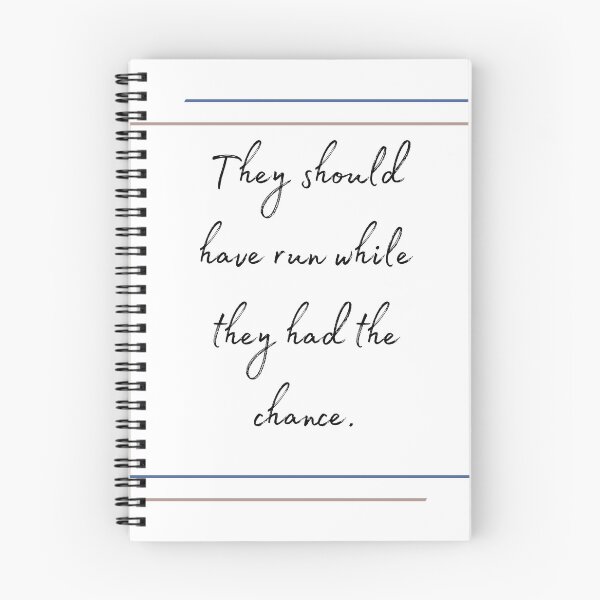 They should
have run while
they had the
chance.